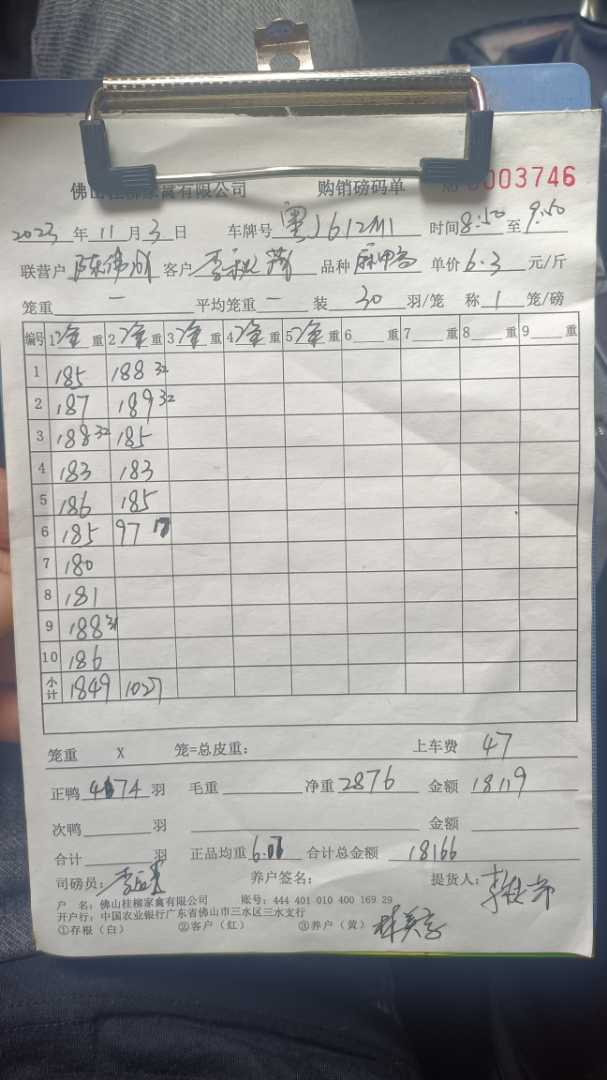 佛山桂柳家禽有限公司 购销磅码单 № 0003746
2023年11月3日 车牌号 粤J612M1 时间8:50至9:50
联营户 陈伟成 客户 李 品种 麻甲 单价6.3元/斤
笼重 一 平均笼重 一 装 30 羽/笼 称 1 笼/磅
编号 1净重 2净重 3净重 4净重 5净重 6 重 7 重 8 重 9 重
1 185 188 32
2 187 189 32
3 188 32 185
4 183 183
5 186 185
6 185 97 17
7 180
8 181
9 188 31
10 186
小计 1849 1027
笼重 X 笼=总皮重: 上车费 47
正鸭 羽 毛重 净重 2876 金额 18119
次鸭 羽 金额
合计 羽 正品均重 6.07 合计总金额 18166
司磅员: 李 养户签名: 提货人: 李
户 名: 佛山桂柳家禽有限公司 账号: 444 401 010 400 169 29
开户行: 中国农业银行广东省佛山市三水区三水支行
①存根(白) ②客户(红) ③养户(黄)